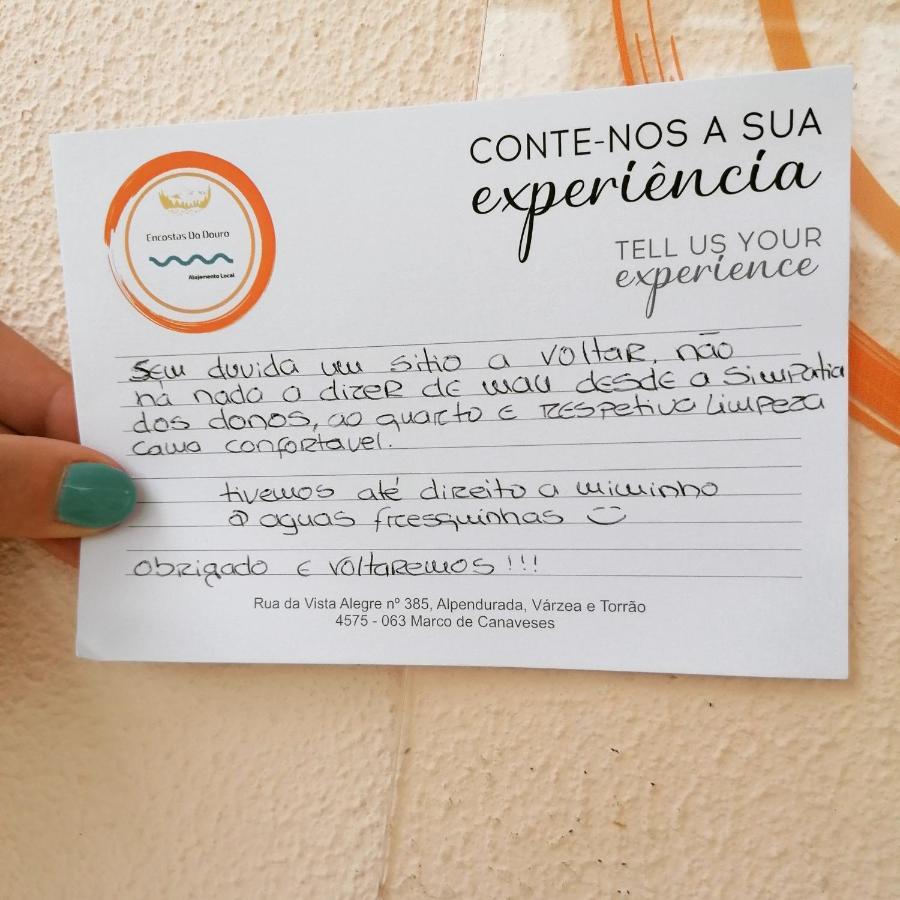 CONTE-NOS A SUA
experiência
TELL US YOUR
experience
Encostas Do Douro
Alojamento Local
Sem duvida um sitio a voltar, não
há nada a dizer de mau desde a simpatia
dos donos, ao quarto e respetiva limpeza
cama confortavel.
tivemos até direito a miminho
e aguas fresquinhas
obrigado e voltaremos !!!
Rua da Vista Alegre nº 385, Alpendurada, Várzea e Torrão
4575 - 063 Marco de Canaveses